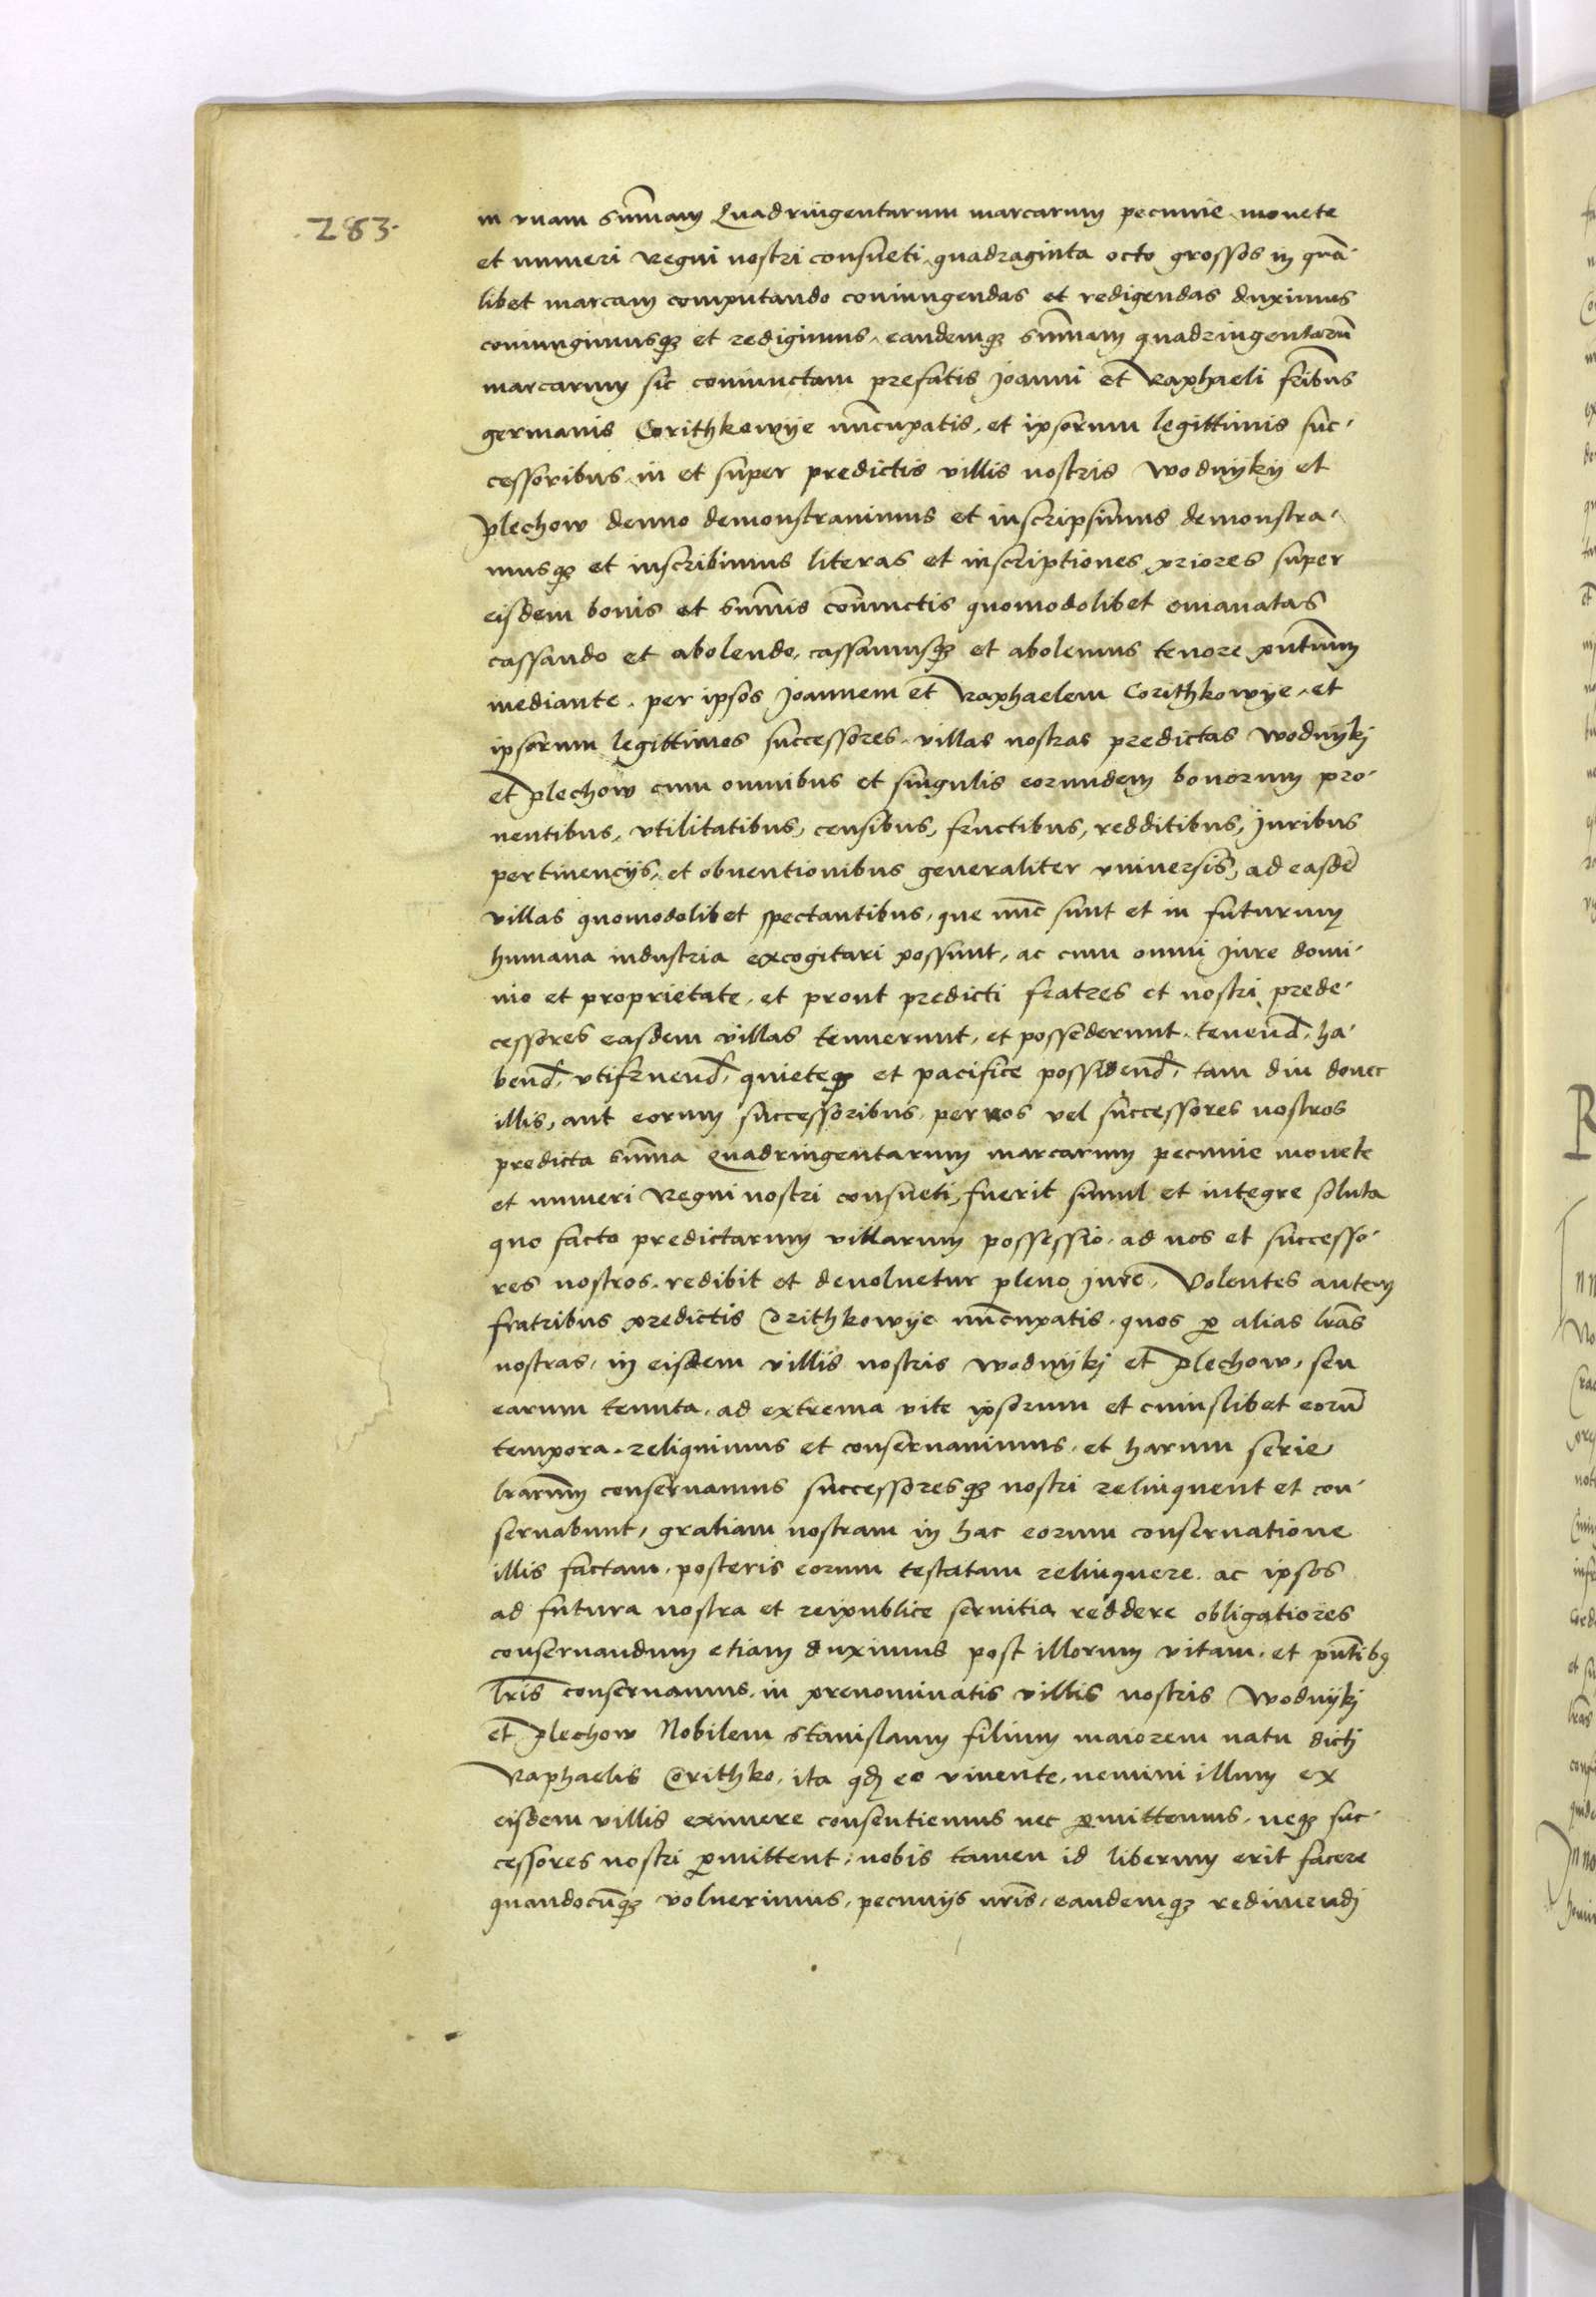 283.
in vnam sum̃am Quadringentarum marcarum pecunie monete
et numeri Regni nostri consueti quadraginta octo grossos in quã-
libet marcam computando coniungendas et redigendas duximus
coniungimusqꝫ et redigimus, eandemqꝫ sum̃am quadringentarũ
marcarum sic coniunctam prefatis Joanni et Raphaeli fr̃ibus
germanis Corithkowÿe nũcupatis, et ipsorum legittimis suc-
cessoribus in et super predictis villis nostris Wodnÿkÿ et
Plechow denuo demonstrauimus et inscripsimus demonstra-
musqꝫ et inscribimus literas et inscriptiones priores super
eisdem bonis et sum̃is cõiunctis quomodolibet emanatas
cassando et abolendo, cassamusqꝫ et abolemus tenore pñtium
mediante. per ipsos Joannem et Raphaelem Corithkowÿe, et
ipsorum legittimos successores, villas nostras predictas Wodnÿkj
et Plechow cum omnibus et singulis eorundem bonorum pro-
uentibus, vtilitatibus, censibus, fructibus, redditibus, Juribus
pertinencijs, et obuentionibus generaliter vniuersis, ad easdẽ
villas quomodolibet spectantibus, que nũc sunt et in futurum
humana industria excogitari possunt, ac cum omni Jure domi-
nio et proprietate, et prout predicti fratres et nostri prede-
cessores easdem villas tenuerunt, et possederunt. tenend̃, ha-
bend̃, vtifruend̃, quieteqꝫ et pacifice possidend̃, tam diu donec
illis, aut eorum successoribus, per nos vel successores nostros
predicta sum̃a Quadringentarum marcarum pecunie monete
et numeri Regni nostri consueti, fuerit simul et integre soluta
quo facto predictarum villarum possessio, ad nos et successo-
res nostros. redibit et deuoluetur pleno Jure. Volentes autem
fratribus predictis Corithkowÿe nũcupatis. quos ꝑ alias lr̃as
nostras, in eisdem villis nostris Wodnÿkj et Plechow, seu
earum tenuta, ad extrema vite ipsorum et cuiuslibet eorũ
tempora. reliquimus et conseruauimus, et harum serie
lr̃arum conseruamus successoresqꝫ nostri relinquent et con-
seruabunt, gratiam nostram in hac eorum conseruatione
illis factam, posteris eorum testatam relinquere. ac ipsos
ad futura nostra et reipublice seruitia reddere obligatiores
conseruandum etiam duximus post illorum vitam, et pñtibꝫ
lr̃is conseruamus, in prenominatis villis nostris Wodnÿkj
et Plechow Nobilem Stanislaum filium maiorem natu dictj
Raphaelis Corithko, ita qđ eo viuente, nemini illum ex
eisdem villis eximere consentiemus nec ꝑmittemus, neqꝫ suc-
cessores nostri ꝑmittent, nobis tamen id liberum erit facere
quandocũqꝫ voluerimus, pecunijs nr̃is, eandemqꝫ redimendj